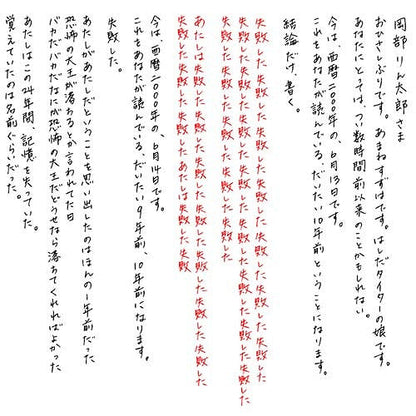 岡部りん太郎さま
おひさしぶりです。あまねすずはです。はしだタイターの娘です。
あなたにとっては、つい数時間前以来のことかもしれない。
今は、西暦二〇〇〇年の、6月13日です。
これをあなたが読んでいる、だいたい10年前ということになります。
結論だけ、書く。
失敗した失敗した失敗した失敗した失敗した失敗した失敗した失敗した
失敗した失敗した失敗した失敗した失敗した失敗した失敗した失敗した失敗した
失敗した失敗した失敗した失敗した失敗した
あたしは失敗した失敗した失敗した失敗した失敗した失敗した失敗した
失敗した失敗した失敗したあたしは失敗した失敗
今は、西暦二〇〇〇年の、6月14日です。
これをあなたが読んでいる、だいたい9年前、10年前になります。
失敗した。
あたしがあたしだということを思い出したのはほんの一年前だった
恐怖の大王が落ちるとか言われてた日
バカだバカだなにが恐怖の大王だどうせなら落ちてくれればよかった
あたしはこの24年間、記憶を失っていた。
覚えていたのは名前ぐらいだった。